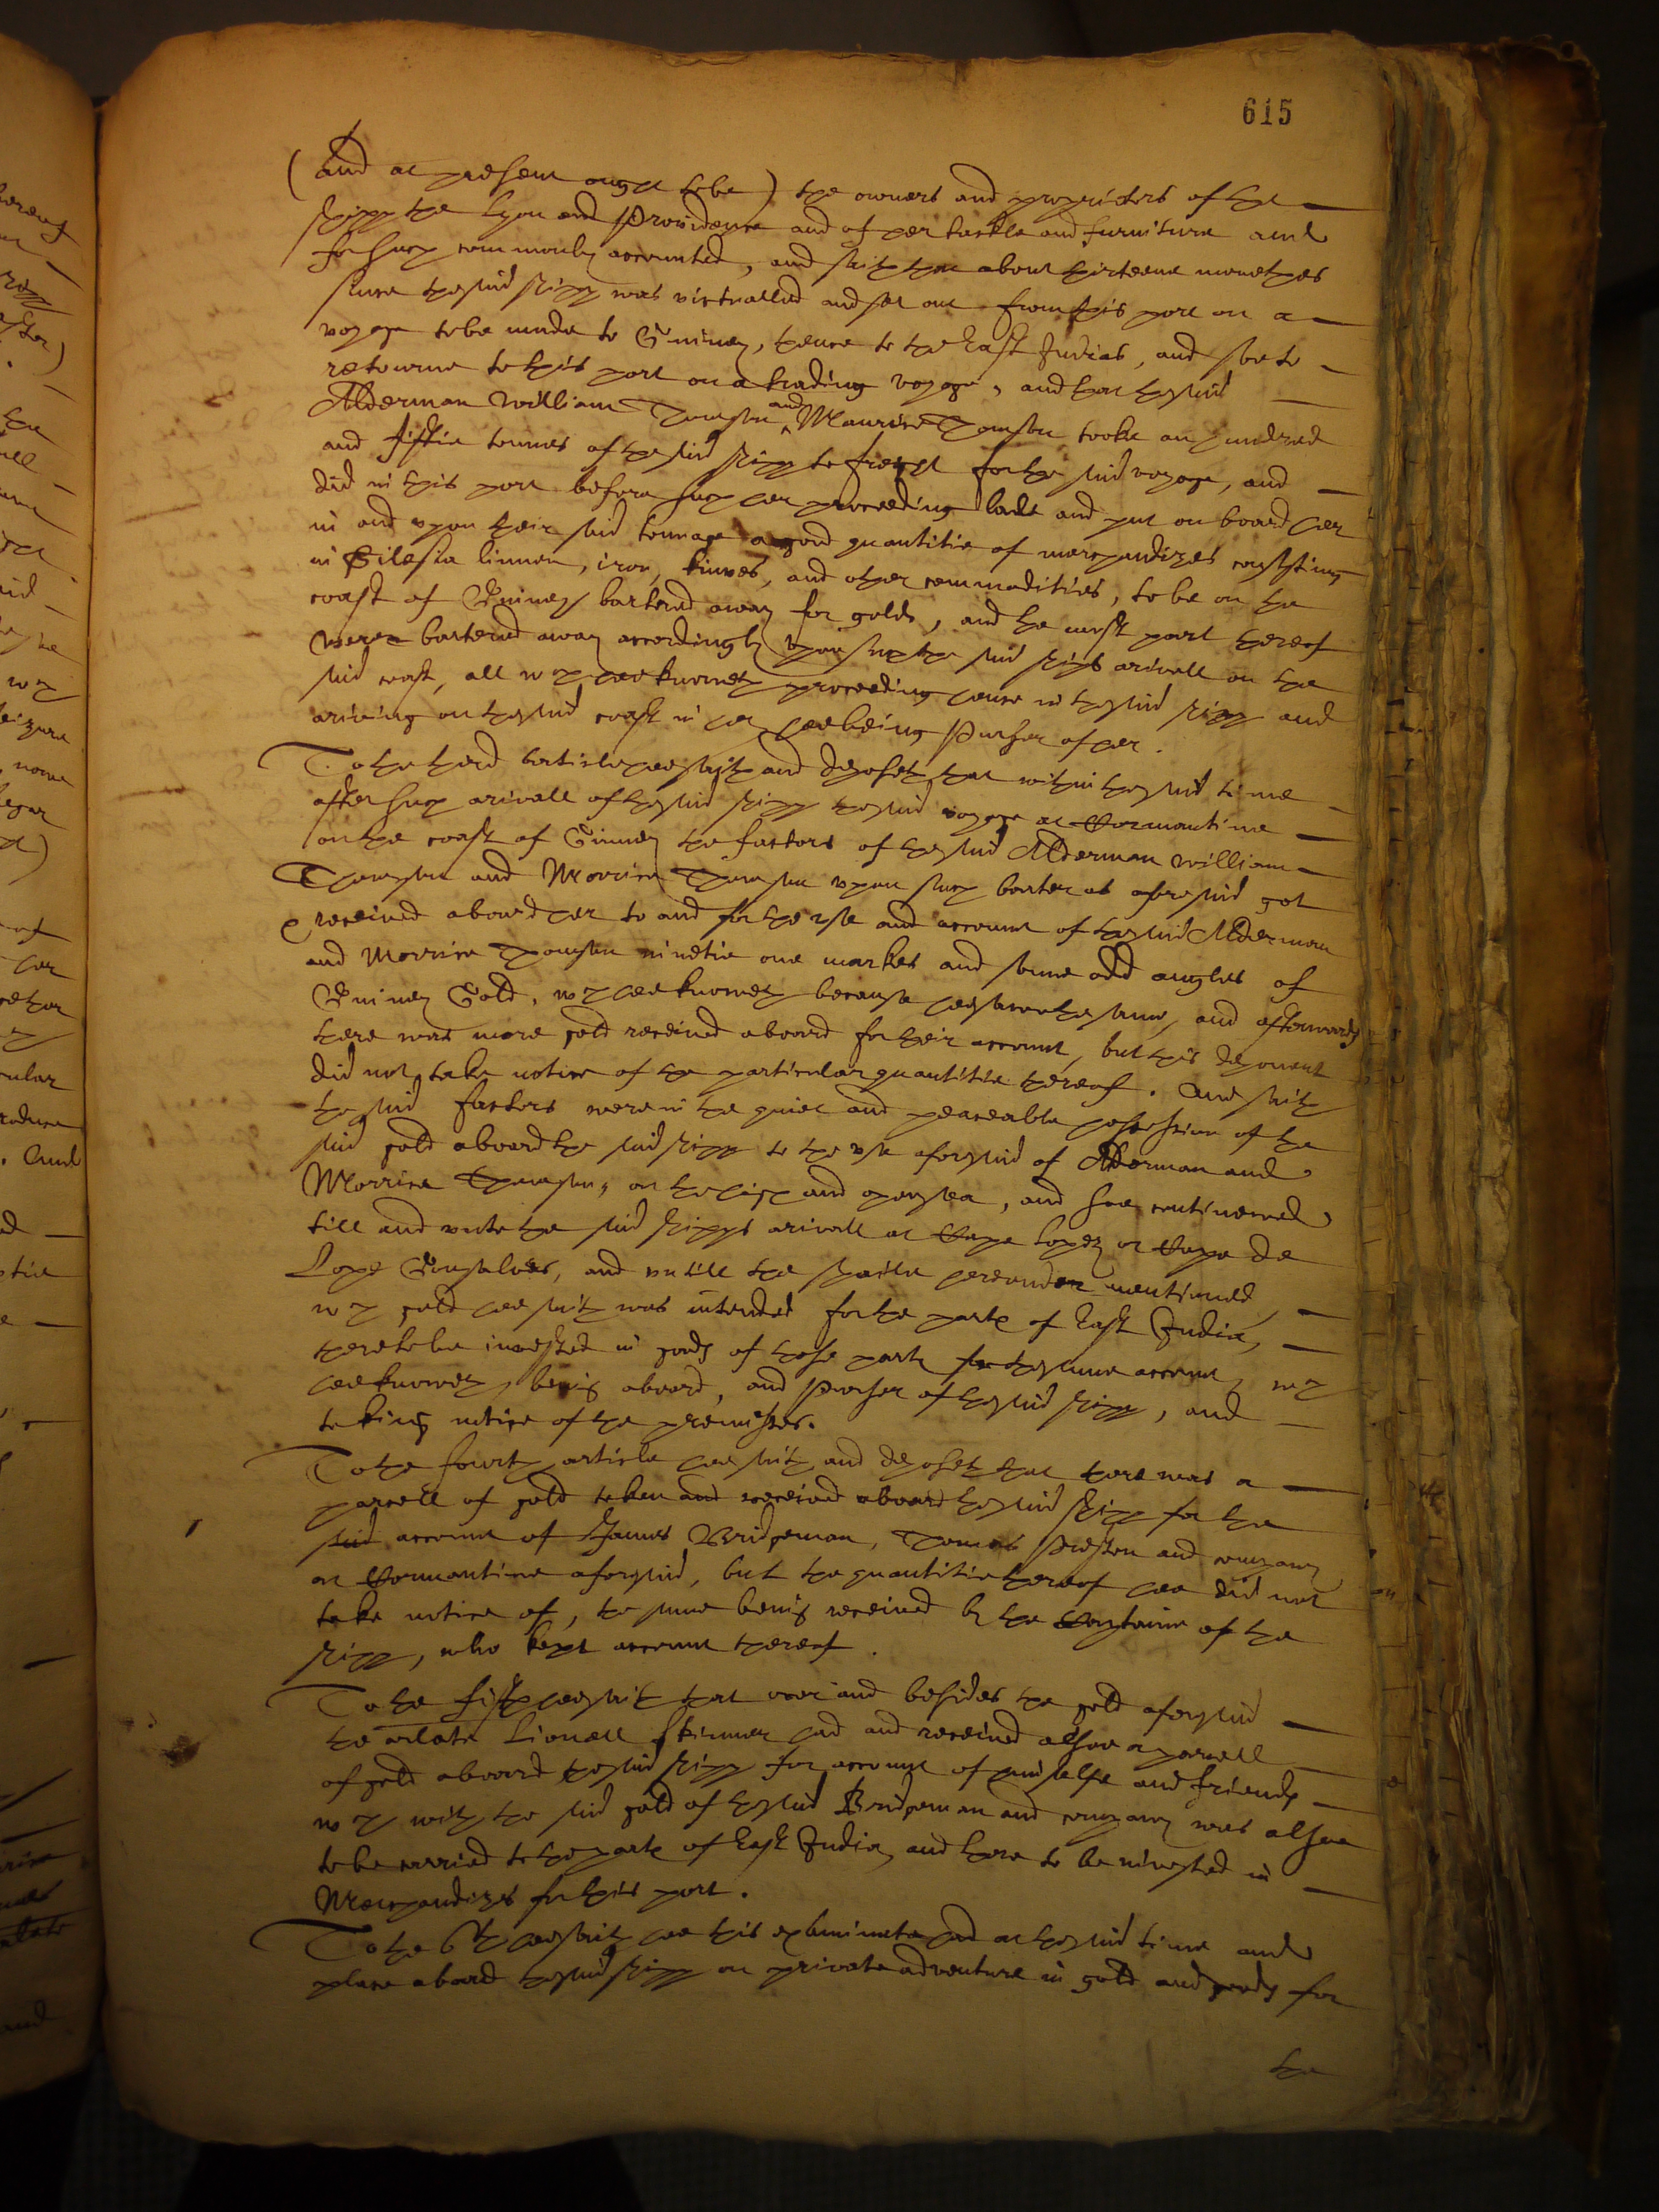 615
(and at present ought to be) the owners and proprietors of the
shipp the Lyon and Providence and of her tackle and furniture and
for such commonly accounted, and saith that about thirteene monethes
since the said shipp was victualled and set out from this port on a
voyage to be made to Guiney, thence to the East Indias, and soe to
retourne to this port on a trading voyage, and that the said
Alderman William Thomson and Maurice Thomson tooke an hundred
and fiftie tonnes of the said shipp to freight for the said voyage, and
did in this port before such her proceeding lade and put on board her
in and upon their said tonnage a good quantitie of merchandizes consisting
in Silesia linnen, iron, knives, and other commodities, to be on the
coast of Guiney bartered away for golde, and the most part thereof
were bartered away accordingly upon such the said ships arivall on the
said coast, all wch hee knoweth proceeding hence in the said shipp and
ariving on the said coast in her hee being Purser of her.
To the third article hee saith and deposeth that within the said time
after such arivall of the said shipp the said voyage at Cormantine
on the coast of Guiney the factors of the said Alderman William
Thompson and Morrice Thomson upon such barter as aforesaid got
& received aboard her to and for the use and account of the said Alderman
and Morrice Thomson ninetie one markes and some odd angles of
Guiney Gold, wch hee knoweth because hee sawe the same, and afterwards
there was more gold received aboard for their account, but this deponent
did not take notice of the particular quantitie thereof. And saith
the said factors were in the quiet and peaceable possession of the
said gold aboard the said shipp to the use aforesaid of Alderman and
Morrice Thomson, on the high and open sea, and soe continewed
till and unto the said shipps arivall at Cape Lopez or Cape de
Lope Gonsalves, and untill the spoile hereunder mentioned,
wch gold hee saith was intended for the parts of East India,
there to be invested in goods of those parts for the same account, wch
hee knoweth being aboard, and Purser of the said shipp, and
taking notice of the premisses.
To the fourth article hee saith and deposeth that there was a
parcell of gold taken and received aboard the said shipp for the
said account of James Bridgeman, Thomas Preston and company
at Cormantine aforesaid, but the quantitie thereof hee did not
take notice of, the same being received by the Captaine of the
shipp, who kept account thereof.
To the fifth hee saith that over and besides the gold aforesaid
the arlate Lionell Skinner had and received alsoe a parcell
of gold aboard the said shipp for account of himselfe and friends
wch with the said gold of the said Bridgeman and company was alsoe
to be carried to the parts of East India, and there to be invested in
Merchandizes for this port.
To the 6th hee saith hee this examinate had at the said time and
place aboard the said shipp on private adventure in gold and goods for
the